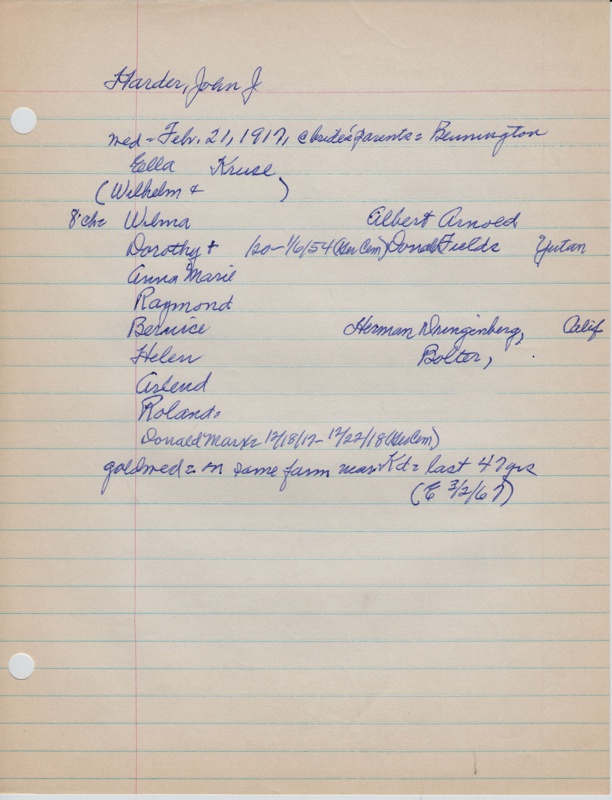 Harder, John J
wed = Feb. 21, 1917, @ bride's parents = Bennington
Ella Kruse
(Wilhelm + )
8 ch = Wilma Albert Arnold
Dorothy + 1/20 - 1/6/54 ( Cem) Donald Fields Yutan
Anna Marie
Raymond
Bernice Herman Dringenberg, Calif
Helen Bolter,
Arlend
Roland =
Donald Marx = 12/18/17 - 12/22/18 ( Cem)
goldwed = on same farm near = last 47 yrs
(E 3/2/67)